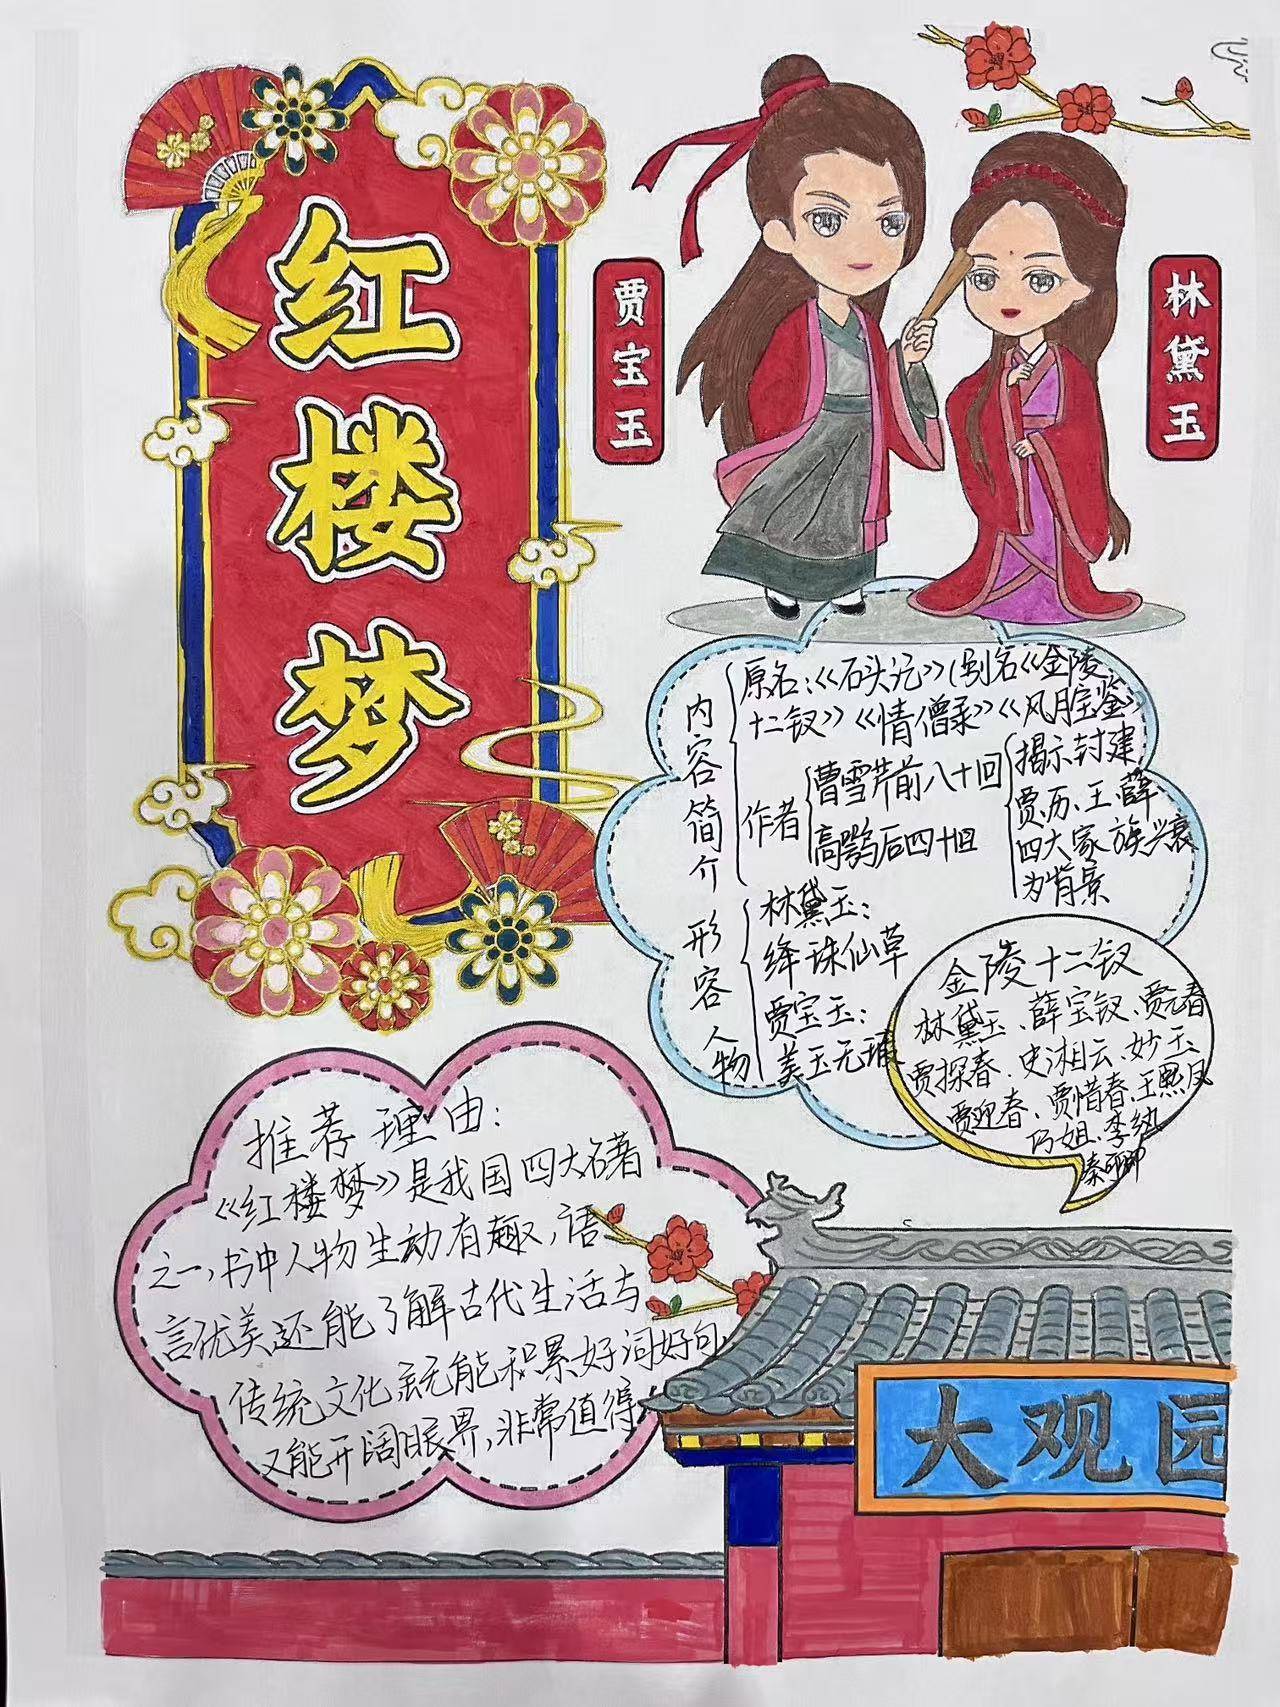 红
楼
梦
贾宝玉
林黛玉
内容简介
原名:《石头记》(别名《金陵
十二钗》《情僧录》《风月宝鉴》
作者
曹雪芹前八十回
高鹗后四十回
揭示封建
贾、历、王、薛
四大家族兴衰
为背景
形容人物
林黛玉:
绛珠仙草
贾宝玉:
美玉无瑕
金陵十二钗
林黛玉、薛宝钗、贾元春
贾探春、史湘云、妙玉
贾迎春、贾惜春、王熙凤
巧姐、李纨
秦可卿
推荐理由:
《红楼梦》是我国四大名著
之一,书中人物生动有趣,语
言优美还能了解古代生活与
传统文化 能积累好词好句
又能开阔眼界,非常值得
大观园